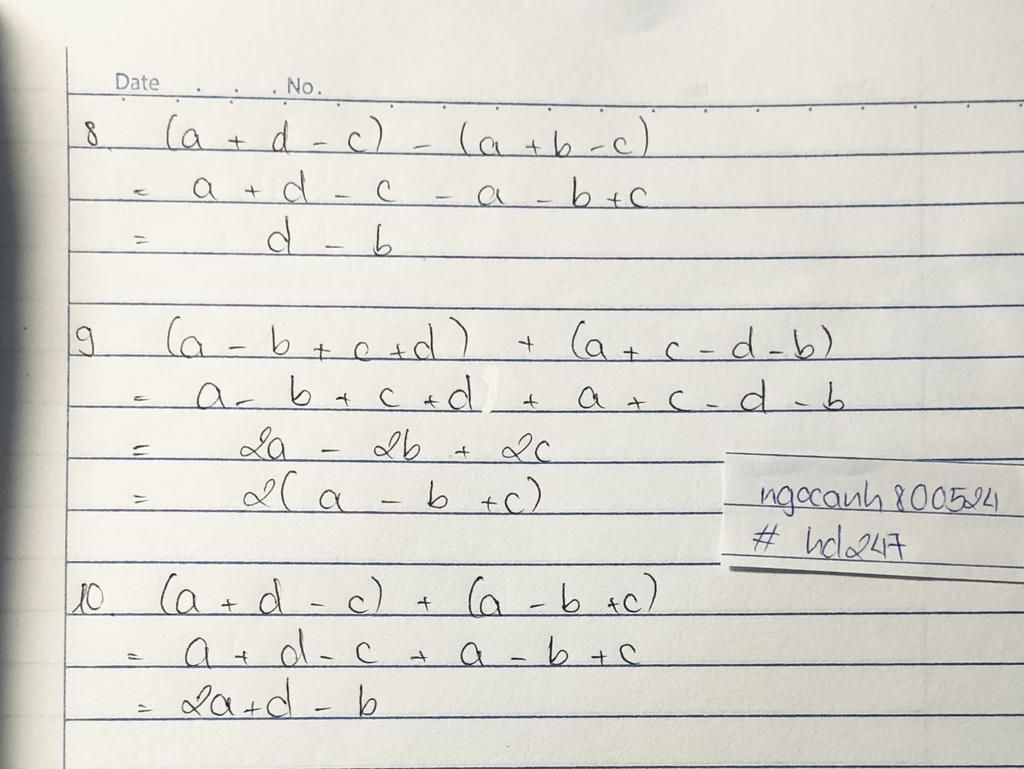 Date . . . . No.
8. (a + d - c) - (a + b - c)
= a + d - c - a - b + c
= d - b
9 (a - b + c + d) + (a + c - d - b)
= a - b + c + d + a + c - d - b
= 2a - 2b + 2c
= 2( a - b + c)
ngocanh800524
# hd247
10. (a + d - c) + (a - b + c)
= a + d - c + a - b + c
= 2a + d - b